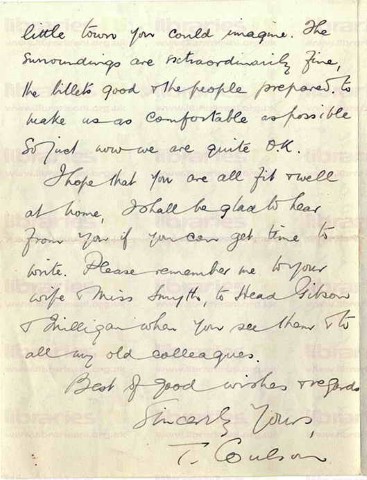 little town you could imagine. The
surroundings are extraordinarily fine,
the billets good & the people prepared to
make us as comfortable as possible
So just now we are quite O.K.
I hope that you are all fit & well
at home, I shall be glad to hear
from you if you can get time to
write. Please remember me to your
wife & Miss Smyth, to Head Gibson
& Milligan when you see them & to
all my old colleagues.
Best of good wishes & regards
Sincerely Yours,
T. Coulson